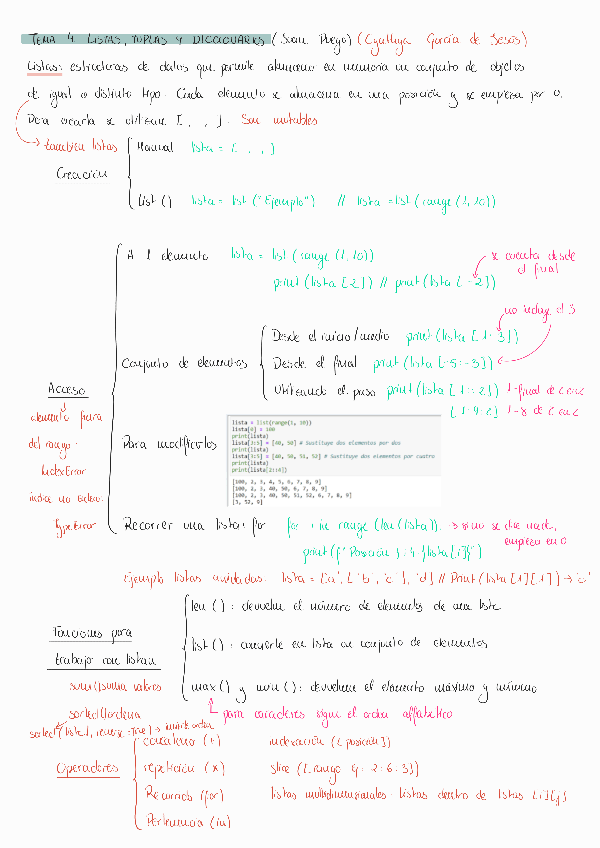 TEMA 4. LISTAS, TUPLAS Y DICCIONARIOS (Juan Puego) (Cynthya García de Jesús)
Listas: estructuras de datos que permite almaceno en memoria un conjunto de objetos
de igual o distinto tipo. Cada elemento se almacena en una posición y se empieza por 0.
Para crearla se utilizan [ , , ]. Son mutables
también listas
Creación
Manual lista = [ , , ]
List () lista = list ("Ejemplo") // lista = list (range (1, 10))
Acceso
A 1 elemento lista = list (range (1, 10))
print (lista [2]) // print (lista [-2])
se cuenta desde
el final
Conjunto de elementos
no incluye el 3
Desde el inicio/medio print (lista [1:3])
Desde el final print (lista [-5:-3])
Utilizando el paso print (lista [1::2]) 1-final de 2 en 2
elemento fuera
del rango -
IndexError
índice no entero:
TypeError
Para modificarlos
lista = list(range(1, 10))
lista[0] = 100
print(lista)
lista[3:5] = [40, 50] # Sustituye dos elementos por dos
print(lista)
lista[3:5] = [40, 50, 51, 52] # Sustituye dos elementos por cuatro
print(lista)
print(lista[2::4])
[100, 2, 3, 4, 5, 6, 7, 8, 9]
[100, 2, 3, 40, 50, 6, 7, 8, 9]
[100, 2, 3, 40, 50, 51, 52, 6, 7, 8, 9]
[3, 52, 9]
Recorrer una lista: for for i in range (len(lista)): → si no se dice nada,
empieza en 0
print (f"Posición
Ejemplo listas anidadas: lista = ['a', ['b', 'c'], 'd'] // Print (lista [1][1]) → 'c'
Funciones para
trabajar con listas
len () : devuelve el número de elementos de una lista
list () : convierte en lista un conjunto de elementos
max () y min () : devuelven el elemento máximo y mínimo
para caracteres sigue el orden alfabético
sum() suma valores
sorted() ordena
sorted (lista1, reverse = True) →
Operadores
concatena (+) indexación ([posición])
repetición (*)
Recorrido (for) listas multidimensionales: listas dentro de listas [i][j]
Pertenencia (in)